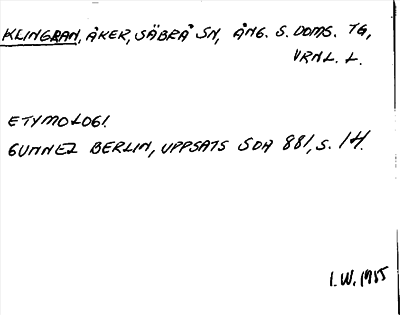 KLINGRAN, ÅKER, SÄBRÅ SN, ÅNG. S. DOMS. TG,
VRNL. L.
ETYMOLOGI.
GUNNEL BERLIN, UPPSATS SOA 881, S. 14.
I.W. 1955